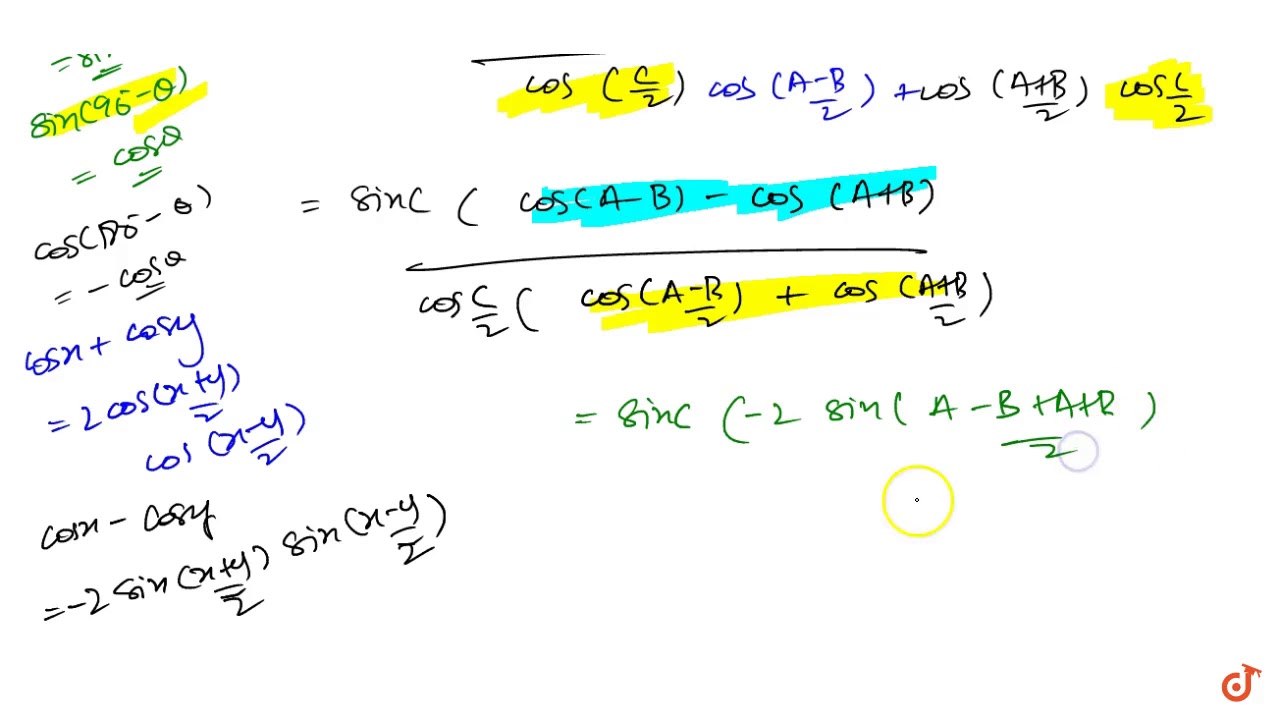 = sin
sin(90° - θ)
= cosθ
cos(180° - θ)
= - cosθ
cosx + cosy
= 2 cos(x+y)/2
cos (x-y)/2
cosx - cosy
= -2 sin(x+y)/2 sin(x-y)/2
cos (C/2) cos (A-B/2) + cos (A+B/2) cos C/2
= sinC ( cos(A-B) - cos (A+B)
cos C/2 ( cos(A-B/2) + cos (A+B/2)
= sinC (-2 sin( A - B + A+B/2 )